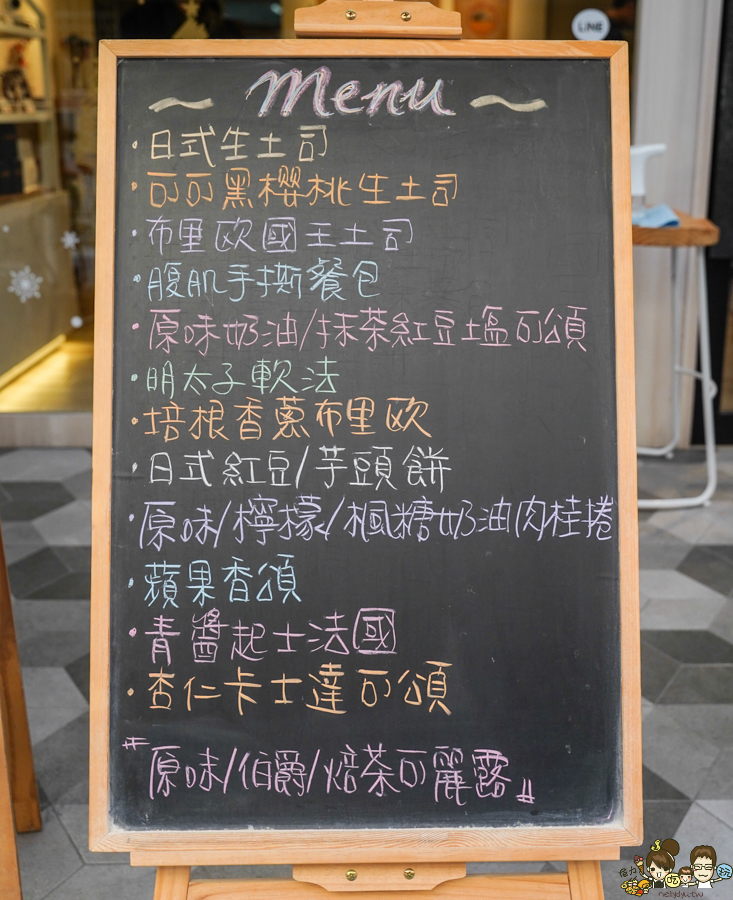 LINE
~ Menu ~
·日式生土司
·可可黑櫻桃生土司
·布里歐國王土司
·腹肌手撕餐包
·原味奶油/抹茶紅豆塩可頌
·明太子軟法
·培根香蔥布里歐
·日式紅豆/芋頭餅
·原味/檸檬/楓糖奶油肉桂捲
·蘋果香頌
·青醬起士法國
·杏仁卡士達可頌
〝原味/伯爵/焙茶可麗露〞